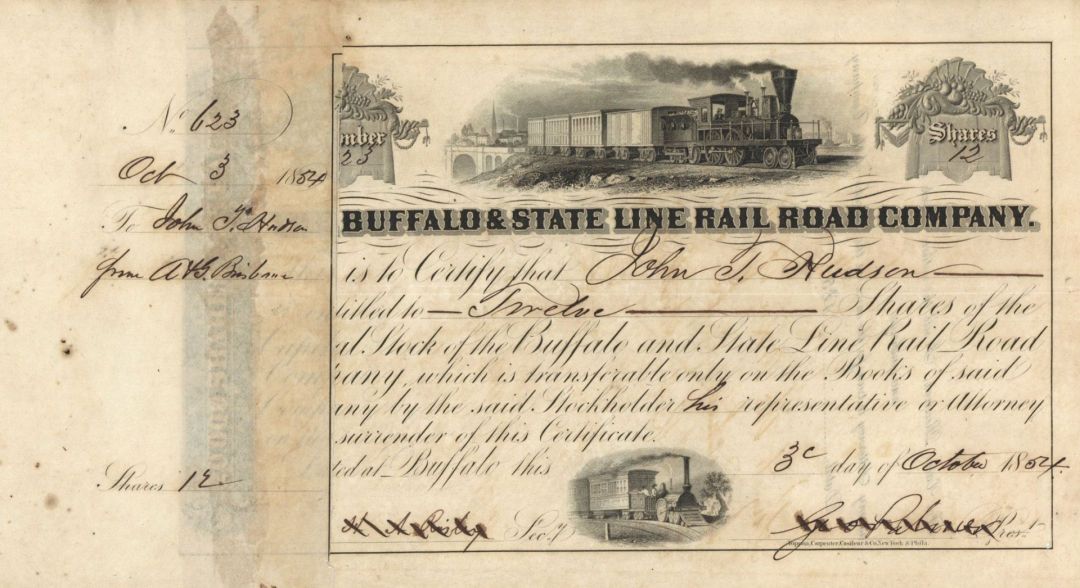 No 623
Oct 3 1854
To John T. Hudson
from A & G Brisbane
Shares 12
mber
23
Shares
12
BUFFALO & STATE LINE RAIL ROAD COMPANY.
is to Certify that John T. Hudson
titled to Twelve Shares of the
al Stock of the Buffalo and State Line Rail Road
pany, which is transferable only on the Books of said
any by the said Stockholder his representative or Attorney
surrender of this Certificate.
ted at Buffalo this 3d day of October 1854.
Secy
Prest
Toppan, Carpenter, Casilear & Co. New York & Phila.